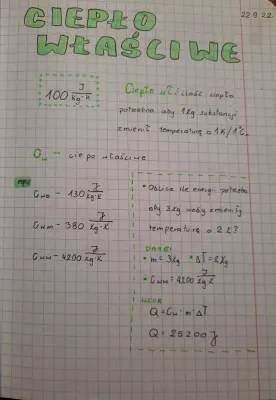 22.9.22
CIEPŁO
WŁAŚCIWE
100 J/kg·K
Ciepło wł.: ilość ciepła
potrzebna aby 1kg substancji
zmienił temperaturę o 1K/1°C.
Cw - ciepło właściwe
np:
Cwo - 130 J/kg·K
Cwm - 380 J/kg·K
Cww - 4200 J/kg·K
• Oblicz ile energi potrzeba
aby 3kg wody zmieniły
temperaturę o 2K?
DANE:
• m = 3kg • ΔT = 2K
• Cww = 4200 J/kg·K
WZÓR
Q = Cw · m · ΔT
Q = 25200 J